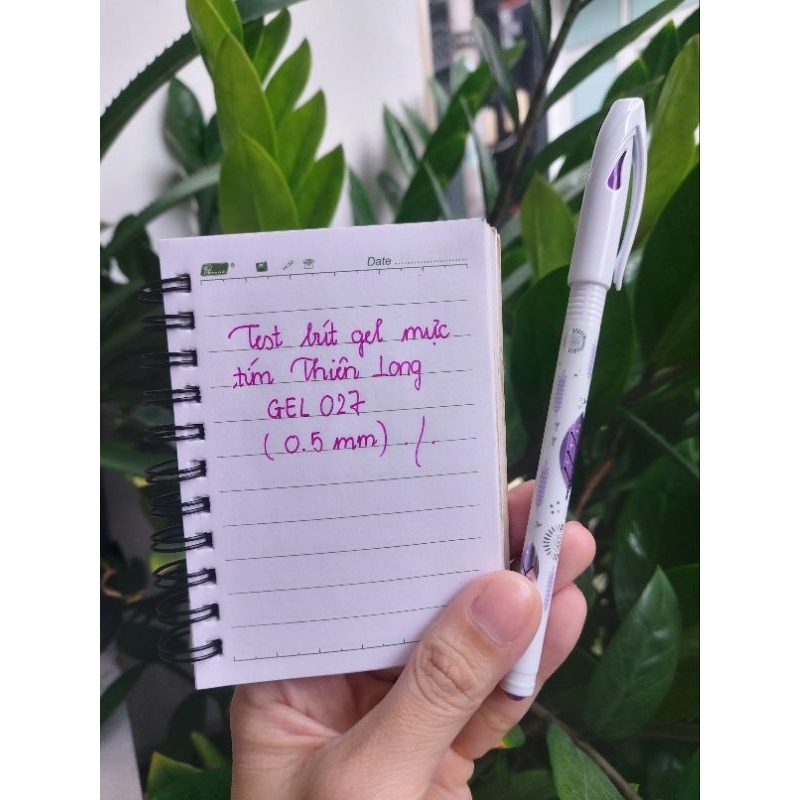 Date ....................
Test bút gel mực
tím Thiên Long
GEL 027
( 0.5 mm) ./.